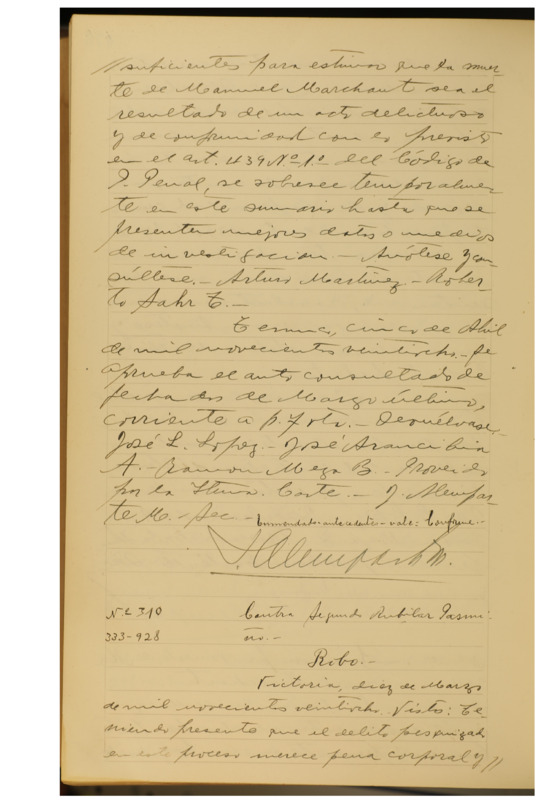 suficientes para estimar que la muer-
te de Manuel Marchant sea el
resultado de un acto delictuoso
y de conformidad con lo previsto
en el art. 439 Nº 1º del Código de
P. Penal, se sobresee temporalmen-
te en este sumario hasta que se
presenten mejores datos o medios
de investigación.- Anótese y con-
súltese.- Arturo Martínez.- Rober-
to Sahr T.-
Temuco, cinco de Abril
de mil novecientos veintiocho.- Se
aprueba el auto consultado de
fecha dos de Marzo último,
corriente a p. 7 vta.- Devuélvase.-
José L. Lopez.- José Arancibia
A.- Ramon Meza B.- Proveido
por la Iltma. Corte.- J. Alempar-
te M.- Sec.- Enmendado-antecedente-vale: Conforme.-
J. Alemparte M.
Nº 310 Contra Segundo Rubilar Pasmi-
333-928 ño.-
Robo.-
Victoria, diez de Marzo
de mil novecientos veintiocho. Vistos: Te-
niendo presente que el delito pesquisado
en este proceso merece pena corporal y